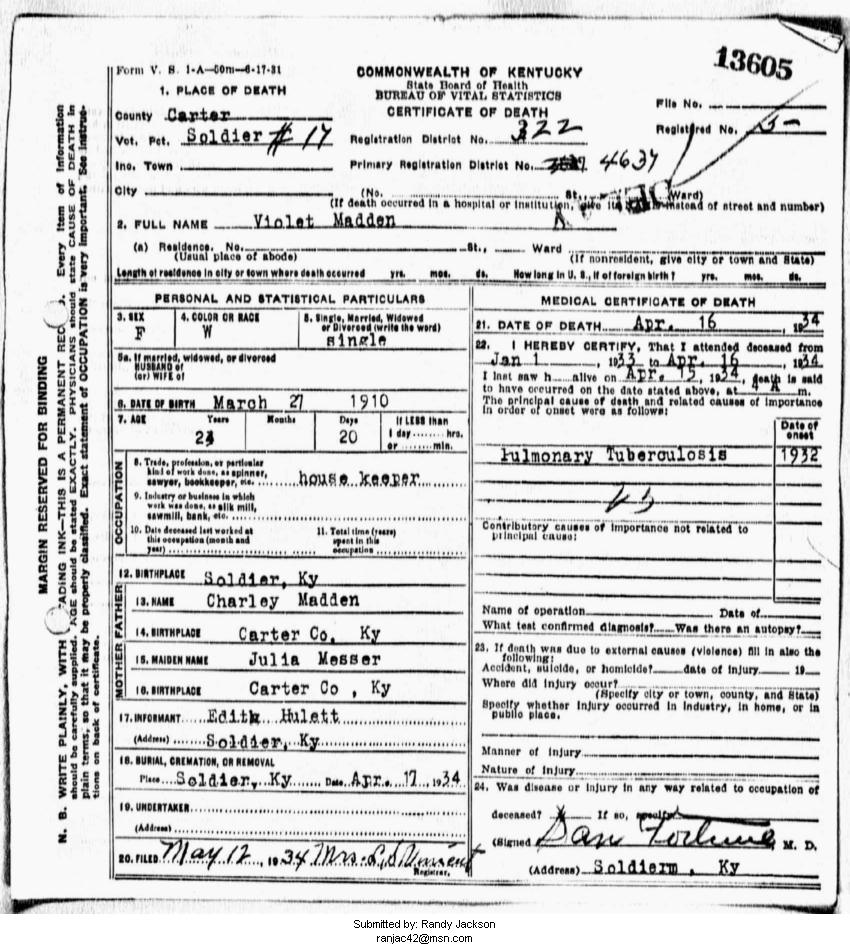 13605
Form V. S. 1-A—50m—6-17-31
COMMONWEALTH OF KENTUCKY
State Board of Health
BUREAU OF VITAL STATISTICS
CERTIFICATE OF DEATH
File No.
Registered No. 5-
1. PLACE OF DEATH
County Carter
Vot. Pct. Soldier # 17
Registration District No. 322
Inc. Town
Primary Registration District No. 4637
City
(No. St., Ward)
(If death occurred in a hospital or institution, give its instead of street and number)
2. FULL NAME Violet Madden
(a) Residence. No. St., Ward
(Usual place of abode) (If nonresident, give city or town and State)
Length of residence in city or town where death occurred yrs. mos. ds. How long in U. S., if of foreign birth? yrs. mos. ds.
MARGIN RESERVED FOR BINDING
N. B. WRITE PLAINLY, WITH ADING INK—THIS IS A PERMANENT REC D. Every item of information
should be carefully supplied. AGE should be stated EXACTLY. PHYSICIANS should state CAUSE OF DEATH in
plain terms, so that it may be properly classified. Exact statement of OCCUPATION is very important. See instruc-
tions on back of certificate.
PERSONAL AND STATISTICAL PARTICULARS
3. SEX
F
4. COLOR OR RACE
W
5. Single, Married, Widowed
or Divorced (write the word)
single
5a. If married, widowed, or divorced
HUSBAND of
(or) WIFE of
6. DATE OF BIRTH March 27 1910
7. AGE Years Months Days If LESS than
20 1 day hrs.
or min.
OCCUPATION
8. Trade, profession, or particular
kind of work done, as spinner,
sawyer, bookkeeper, etc. house keeper
9. Industry or business in which
work was done, as silk mill,
sawmill, bank, etc.
10. Date deceased last worked at
this occupation (month and
year)
11. Total time (years)
spent in this
occupation
12. BIRTHPLACE Soldier, Ky
FATHER
13. NAME Charley Madden
14. BIRTHPLACE Carter Co. Ky
MOTHER
15. MAIDEN NAME Julia Messer
16. BIRTHPLACE Carter Co , Ky
17. INFORMANT Edith Hulett
(Address) Soldier, Ky
18. BURIAL, CREMATION, OR REMOVAL
Place Soldier, Ky Date Apr. 17 , 1934
19. UNDERTAKER
(Address)
20. FILED May 12, 1934 Mrs.
Registrar.
MEDICAL CERTIFICATE OF DEATH
21. DATE OF DEATH Apr. 16 , 1934
22. I HEREBY CERTIFY, That I attended deceased from
Jan 1 , 1933 to Apr. 16 , 1934
I last saw h alive on Apr. 15, 1934, death is said
to have occurred on the date stated above, at 4 A m.
The principal cause of death and related causes of importance
in order of onset were as follows:
Date of
onset
Pulmonary Tuberculosis 1932
Contributory causes of importance not related to
principal cause:
Name of operation Date of
What test confirmed diagnosis? Was there an autopsy?
23. If death was due to external causes (violence) fill in also the
following:
Accident, suicide, or homicide? date of injury 19
Where did injury occur?
(Specify city or town, county, and State)
Specify whether injury occurred in industry, in home, or in
public place.
Manner of Injury
Nature of Injury
24. Was disease or injury in any way related to occupation of
deceased? If so, specify
(Signed Dan Fortune M. D.
(Address) Soldierm , Ky
Submitted by: Randy Jackson
ranjac42@msn.com